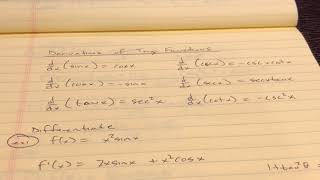 Derivatives of Trig Functions
d/dx (sinx) = cosx d/dx (cscx) = -cscxcotx
d/dx (cosx) = -sinx d/dx (secx) = secxtanx
d/dx (tanx) = sec²x d/dx (cotx) = -csc²x
Differentiate
ex1 f(x) = x²sinx
f'(x) = 2xsinx + x²cosx
1+tan²θ